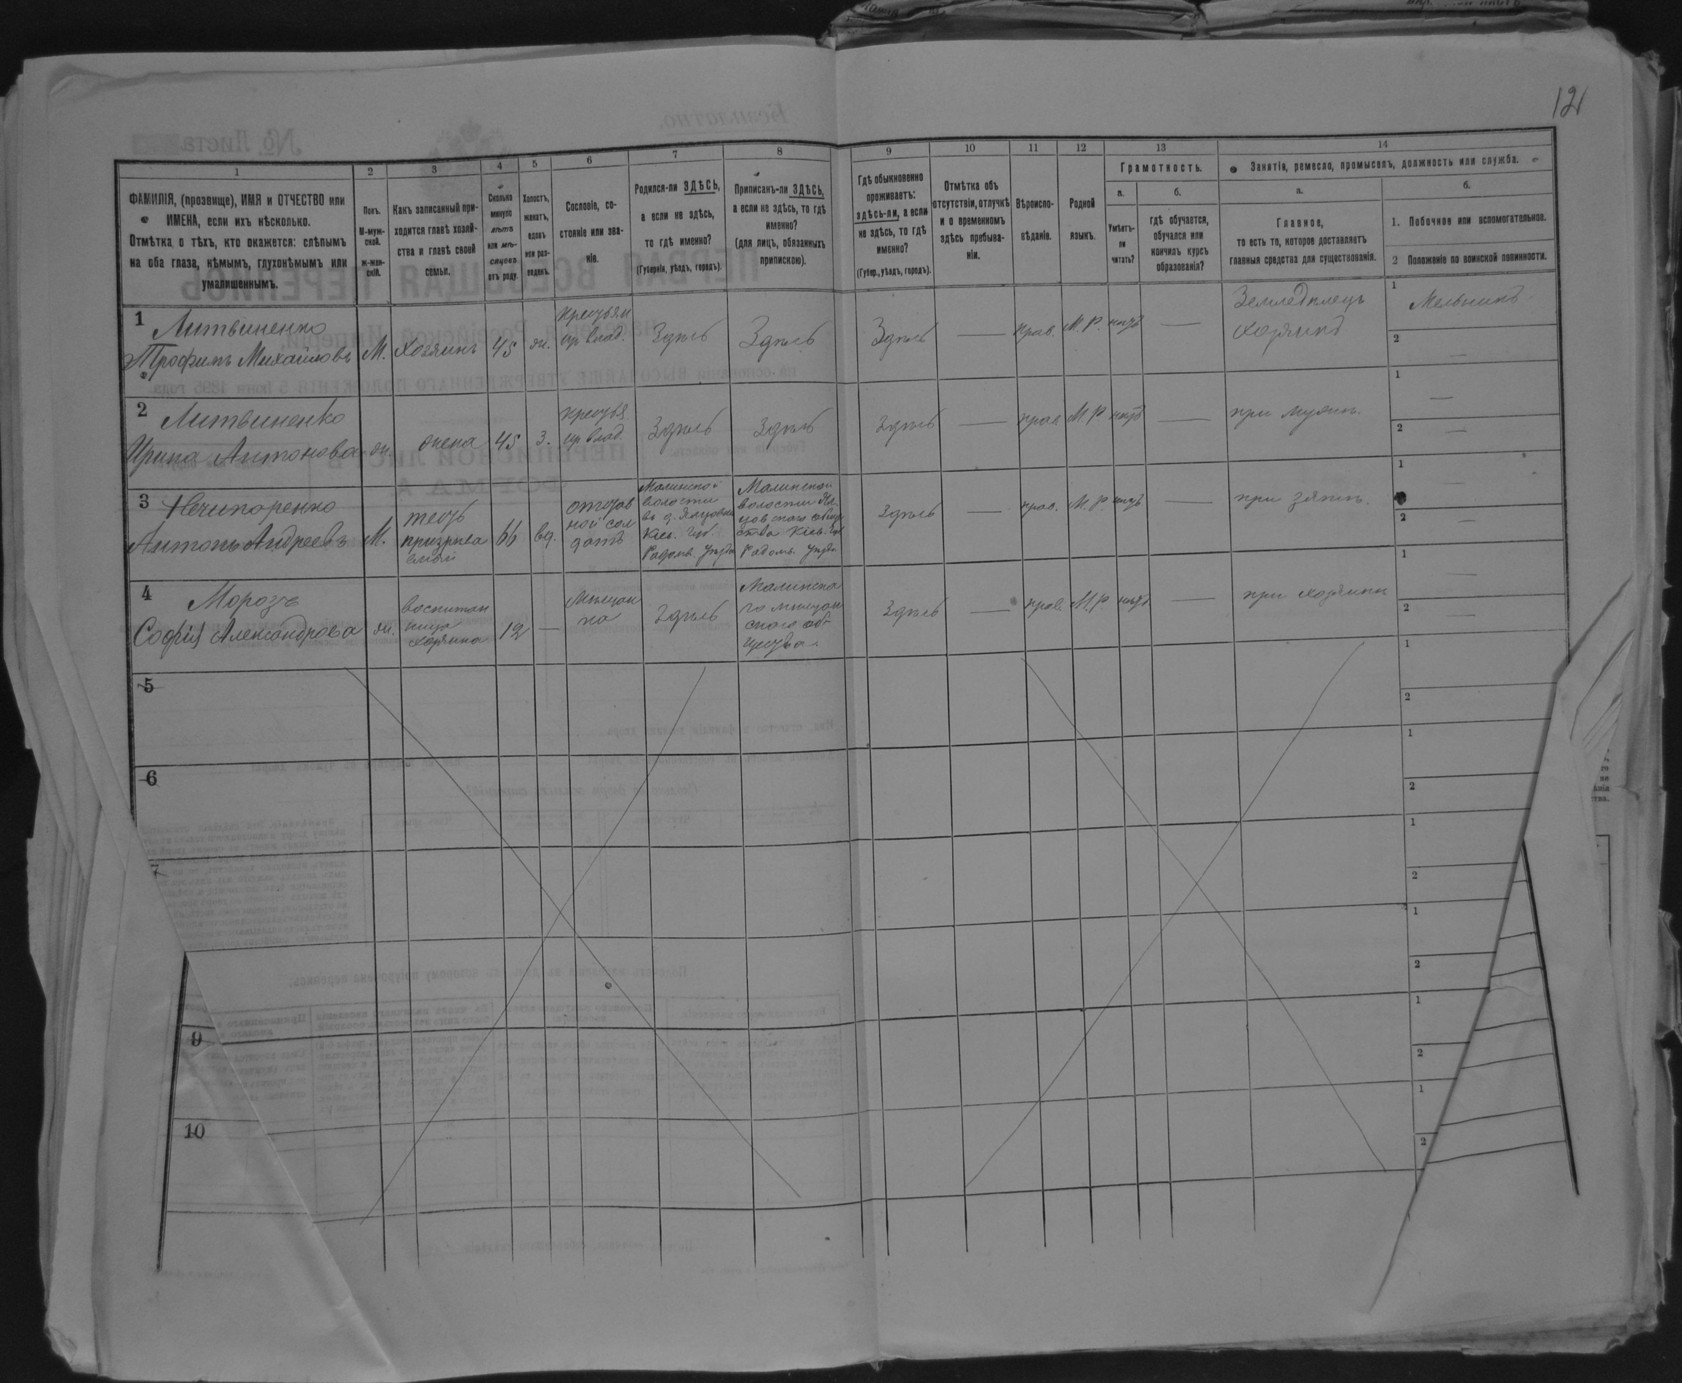 121
1
ФАМИЛІЯ, (прозвище), ИМЯ и ОТЧЕСТВО или
ИМЕНА, если ихъ нѣсколько.
Отмѣтка о тѣхъ, кто окажется: слѣпымъ
на оба глаза, нѣмымъ, глухонѣмымъ или
умалишеннымъ.
2
Полъ.
М-муж-
ской.
ж-жен-
скій.
3
Какъ записанный при-
ходится главѣ хозяй-
ства и главѣ своей
семьи.
4
Сколько
минуло
лѣтъ
или мѣ-
сяцевъ
отъ роду.
5
Холостъ,
женатъ,
вдовъ
или раз-
веденъ.
6
Сословіе, со-
стояніе или зва-
ніе.
7
Родился-ли ЗДѢСЬ,
а если не здѣсь,
то гдѣ именно?
(Губернія, уѣздъ, городъ).
8
Приписанъ-ли ЗДѢСЬ,
а если не здѣсь, то гдѣ
именно?
(для лицъ, обязанныхъ
припискою).
9
Гдѣ обыкновенно
проживаетъ:
здѣсь-ли, а если
не здѣсь, то гдѣ
именно?
(Губер., уѣздъ, городъ).
10
Отмѣтка объ
отсутствіи, отлучкѣ
и о временномъ
здѣсь пребыва-
ніи.
11
Вѣроиспо-
вѣданіе.
12
Родной
языкъ.
13
Грамотность.
а.
Умѣетъ-
ли
читать?
б.
гдѣ обучается,
обучался или
кончилъ курсъ
образованія?
14
Занятіе, ремесло, промыселъ, должность или служба.
а.
Главное,
то есть то, которое доставляетъ
главныя средства для существованія.
б.
1. Побочное или вспомогательное.
2 Положеніе по воинской повинности.
1
Литвиненко
Трофимъ Михайловъ
М.
хозяинъ
45
ж.
крестьян
др. влад.
Здѣсь
Здѣсь
Здѣсь
—
прав.
М. Р.
нѣтъ
—
Земледѣлецъ
хозяинъ
1
Мельникъ
2
—
2
Литвиненко
Ирина Антонова
ж.
жена
45
з.
Здѣсь
Здѣсь
Здѣсь
—
прав
М. Р.
нѣтъ
—
при мужѣ.
1
—
2
—
3
Нечипоренко
Антонъ Андреевъ
М.
тесть
66
вд.
отстав
ной сол
датъ
Малинской
волости
Кіев. Губ.
Радом. Уѣзда
Малинской
волости
Радом. Уѣзда
Здѣсь
—
прав.
М. Р.
нѣтъ
—
при зятѣ.
1
—
2
—
4
Морозъ
Софія Александрова
ж.
воспитан
ница
хозяина
12
—
мѣщан
ка
Здѣсь
Малинска
го мѣщан
скаго об
щества
Здѣсь
—
прав
М. Р.
нѣтъ
—
при хозяинѣ
1
—
2
—
5
1
2
6
1
2
7
1
2
1
2
9
1
2
10
1
2